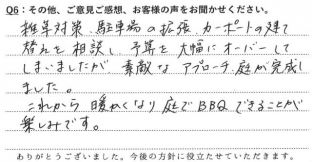 Q6：その他、ご意見ご感想、お客様の声をお聞かせください。
雑草対策、駐車場の拡張、カーポートの建て
替えを相談し、予算を大幅にオーバーして
しまいましたが 素敵なアプローチ、庭が完成し
ました。
これから暖かくなり庭でBBQできることが
楽しみです。
ありがとうございました。今後の方針に役立たせていただきます。